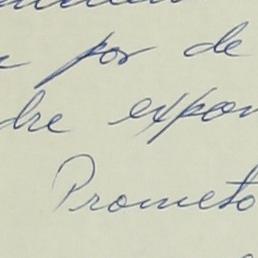 por de
dre expon
Prometo